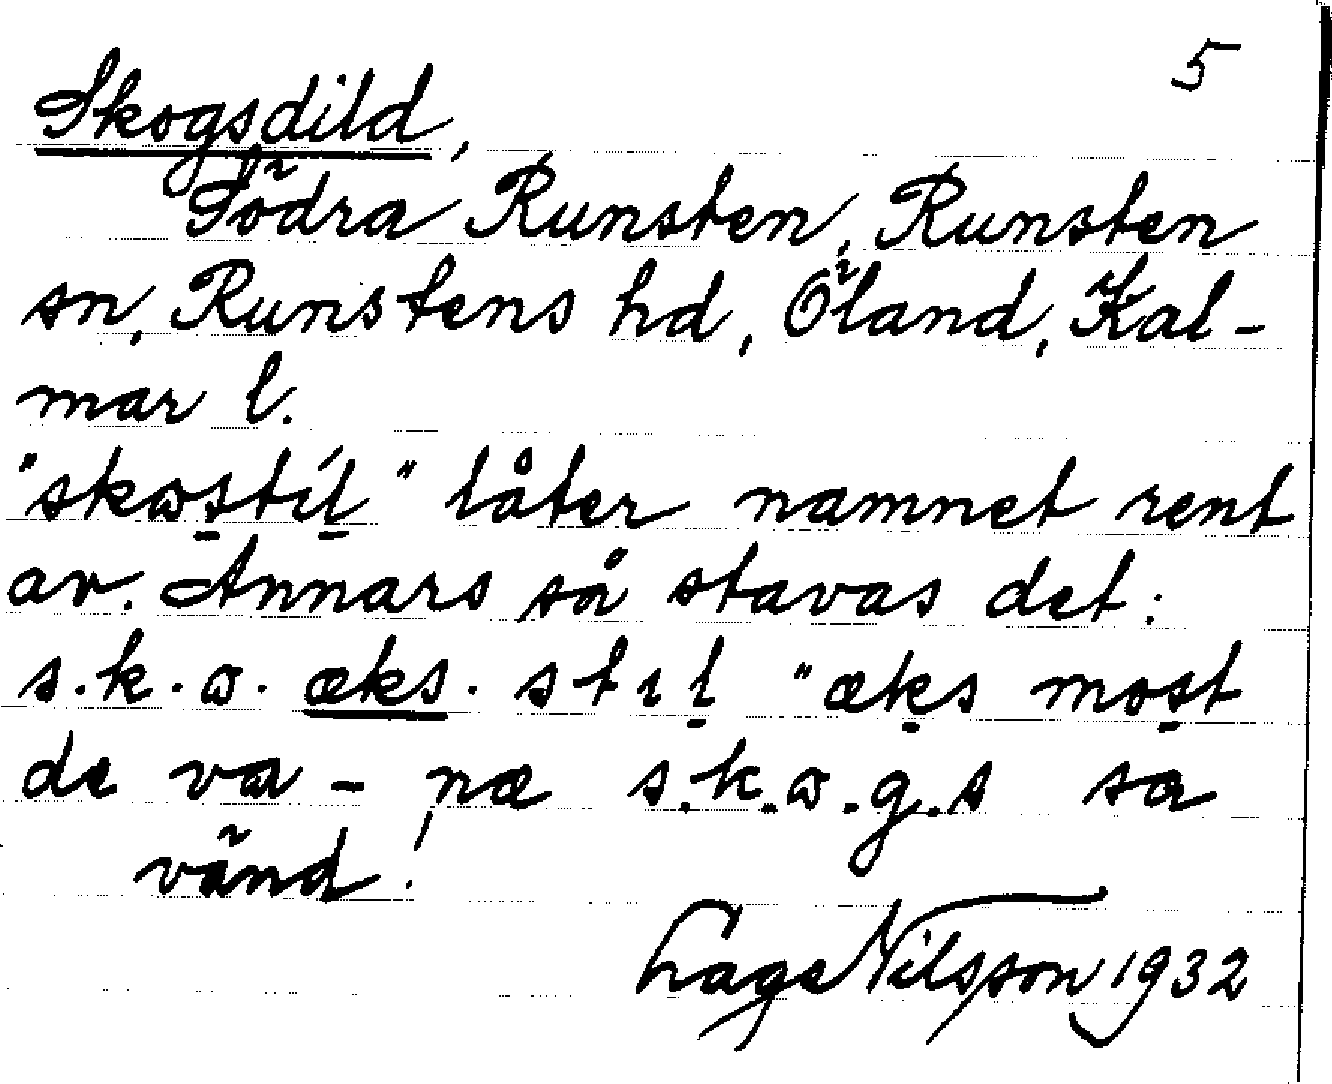 5
Skogsdild,
Södra Runsten, Runsten
sn, Runstens hd, Öland, Kal-
mar l.
"skωs̱tíḻ" låter namnet rent
av. Annars så stavas det:
s.k.ω. æks. stıḻ "æḵs mos̱t
de va - næ s.k.ω.g.s sa
vänd!
Lage Nilsson 1932